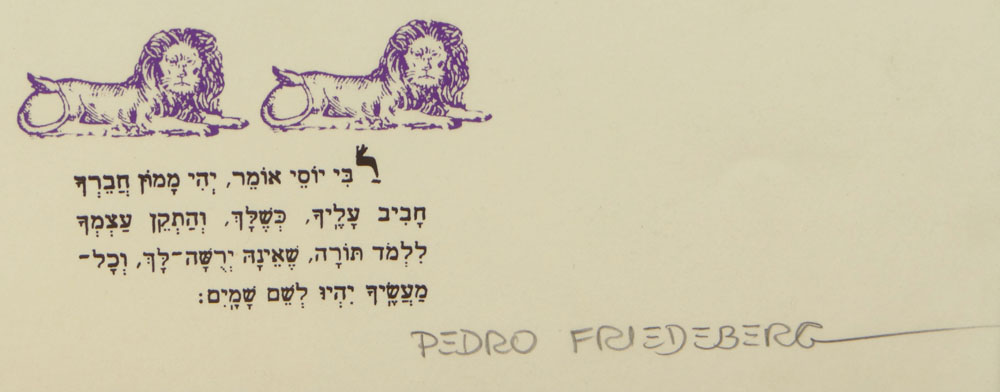 רַבִּי יוֹסֵי אוֹמֵר, יְהִי מָמוֹן חֲבֵרְךָ
חָבִיב עָלֶיךָ, כְּשֶׁלָּךְ, וְהַתְקֵן עַצְמְךָ
לִלְמֹד תּוֹרָה, שֶׁאֵינָהּ יְרֻשָּׁה־לָּךְ, וְכָל־
מַעֲשֶׂיךָ יִהְיוּ לְשֵׁם שָׁמָיִם:
PEDRO FRIEDEBERG